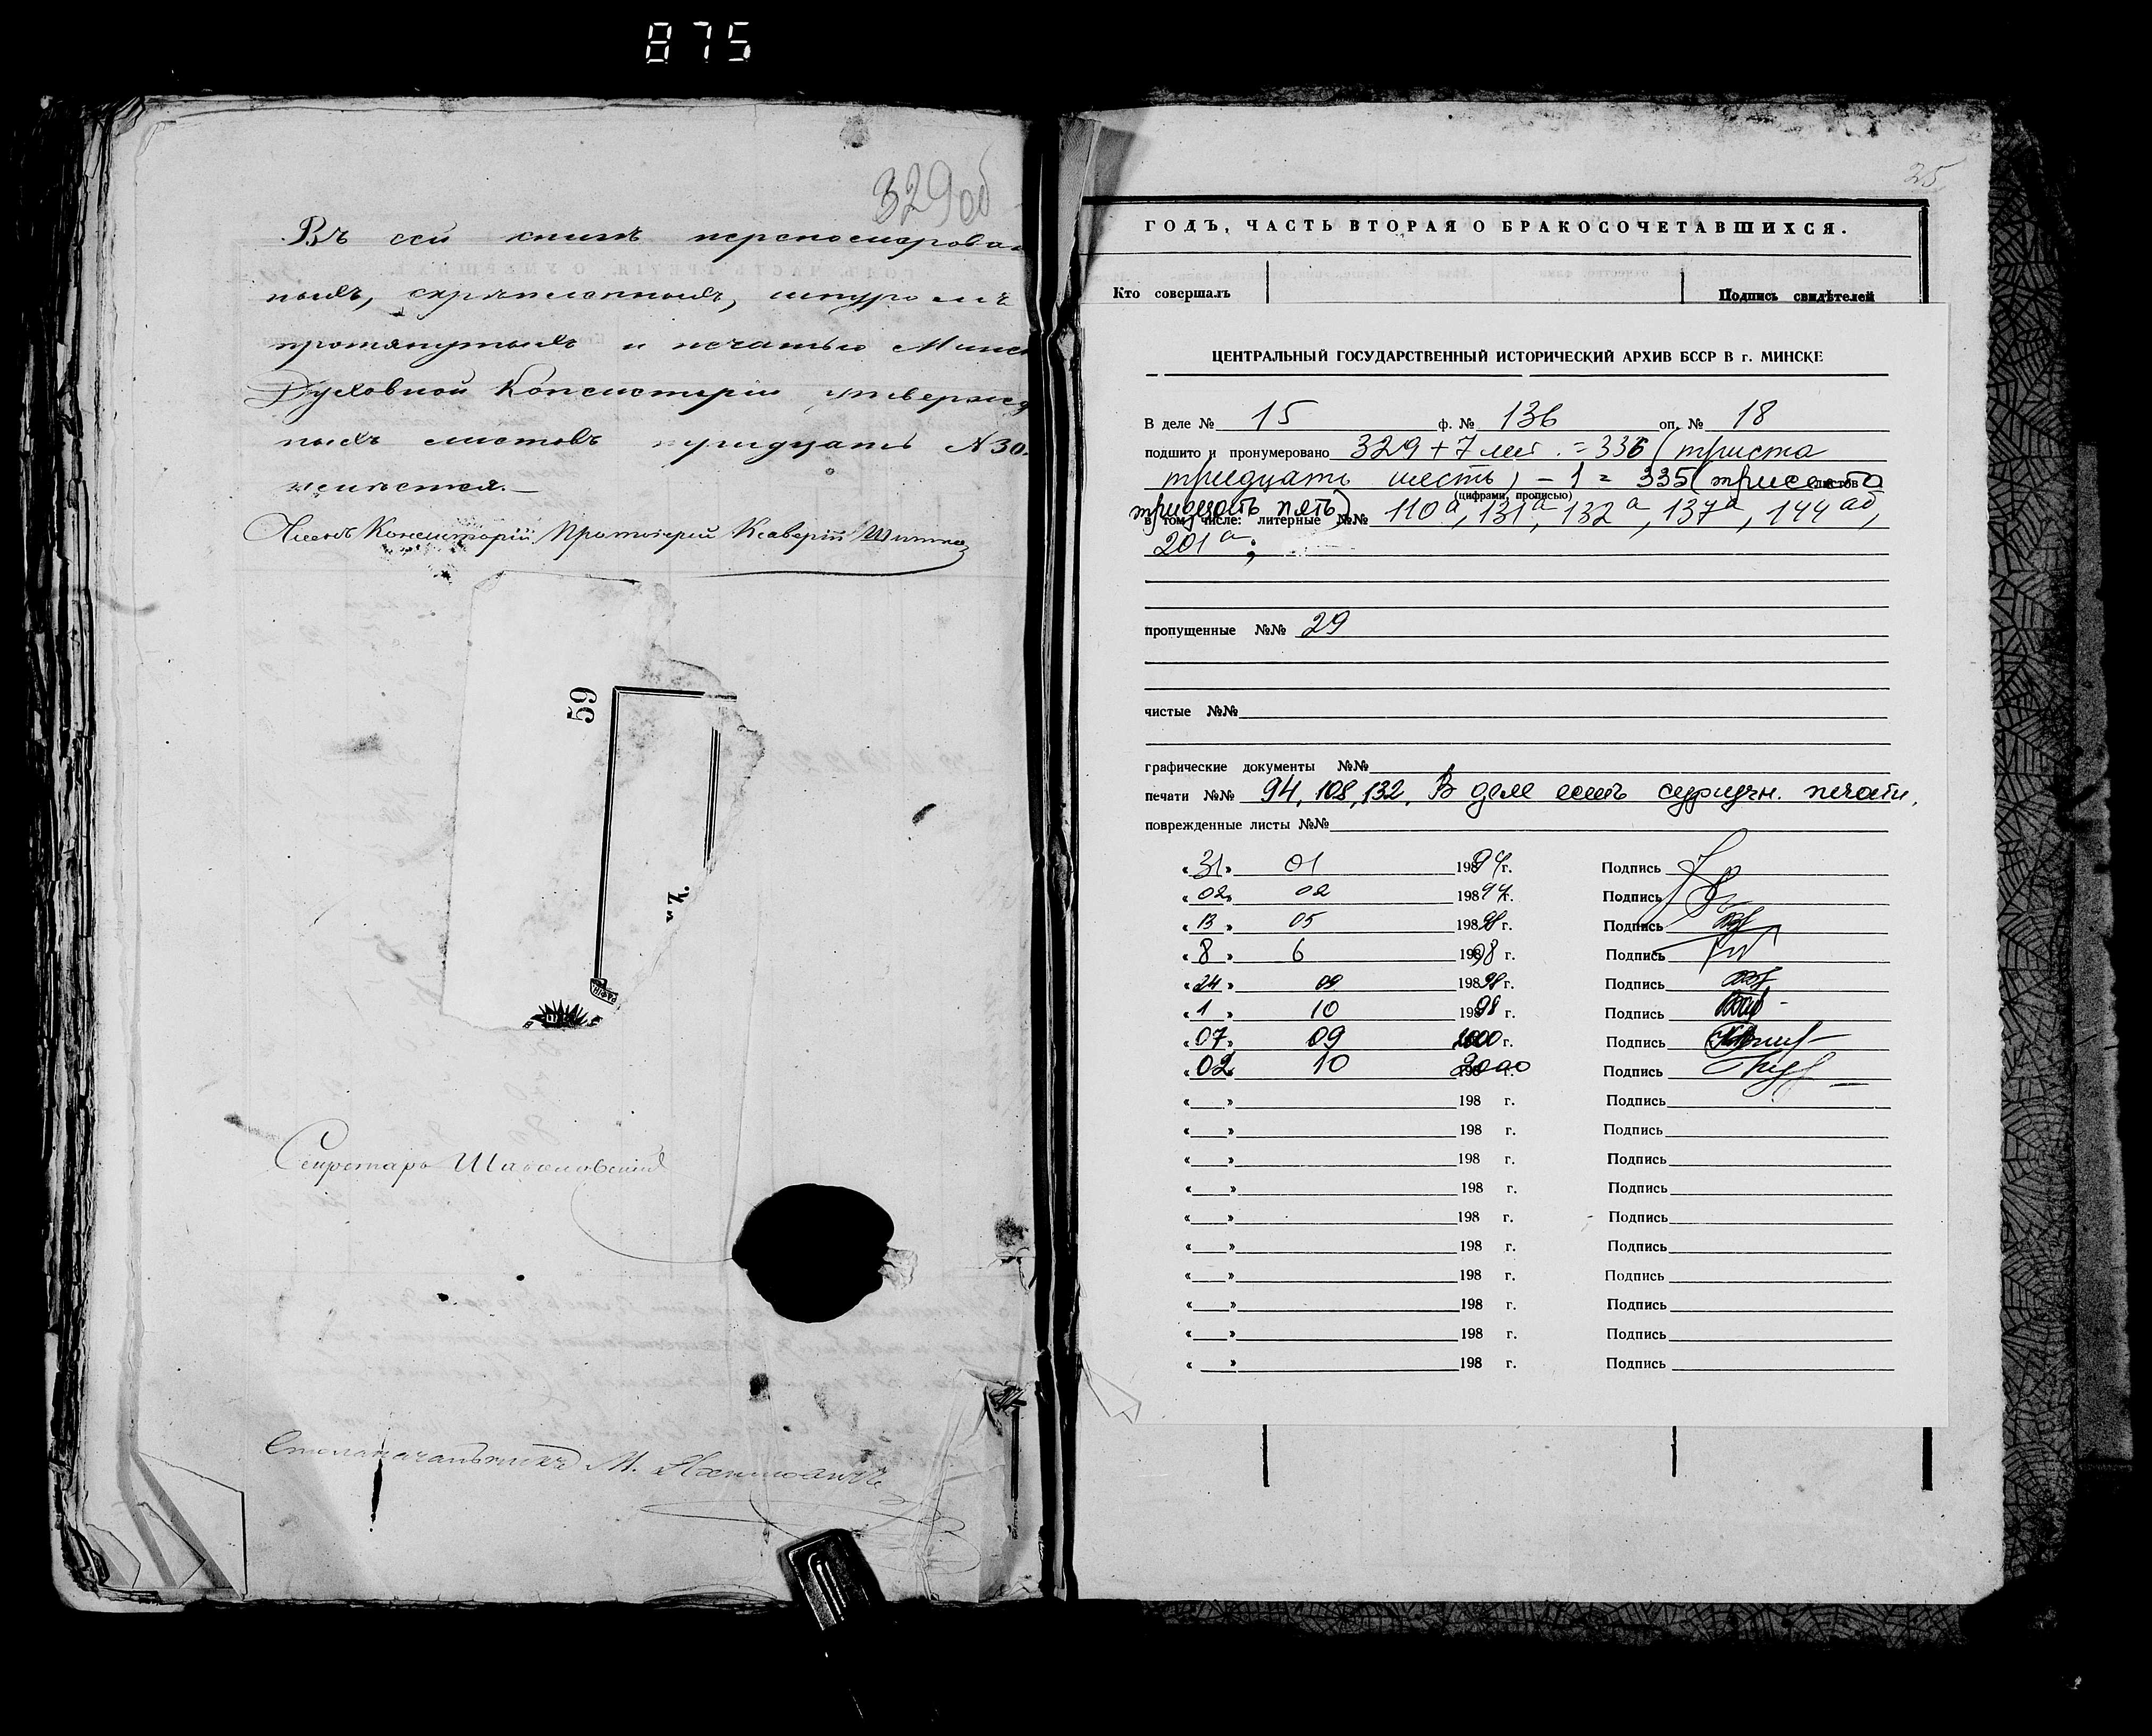 875
329об
Въ сей книгѣ перенумерован
ныхъ, скрѣпленныхъ, шнуромъ
протянутыхъ и печатью Минск
Духовной Консисторіи утвержд
ныхъ листовъ тридцать №30.
Членъ Консисторіи Протоіерей Ксаверій
59
Секретарь
Столоначальникъ М.
25
ГОДЪ, ЧАСТЬ ВТОРАЯ О БРАКОСОЧЕТАВШИХСЯ.
Кто совершалъ
Подпись свидѣтелей
ЦЕНТРАЛЬНЫЙ ГОСУДАРСТВЕННЫЙ ИСТОРИЧЕСКИЙ АРХИВ БССР В г. МИНСКЕ
В деле № 15 ф. № 136 оп. № 18
подшито и пронумеровано 329 + 7 лит. = 336 (триста
тридцать шесть) – 1 = 335 (триста листов
(цифрами, прописью)
тридцать пять)
в том числе: литерные №№ 110а, 131а, 132а, 137а, 144аб,
201а;
пропущенные №№ 29
чистые №№
графические документы №№
печати №№ 94, 108, 132. В деле есть сургучн. печати.
поврежденные листы №№
« 31 » 01 1994 г. Подпись
« 02 » 02 1994 г. Подпись
« 13 » 05 1998 г. Подпись
« 8 » 6 1998 г. Подпись
« 24 » 09 1998 г. Подпись
« 1 » 10 1998 г. Подпись
« 07 » 09 2000 г. Подпись
« 02 » 10 2000 г. Подпись
« » 198 г. Подпись
« » 198 г. Подпись
« » 198 г. Подпись
« » 198 г. Подпись
« » 198 г. Подпись
« » 198 г. Подпись
« » 198 г. Подпись
« » 198 г. Подпись
« » 198 г. Подпись
« » 198 г. Подпись